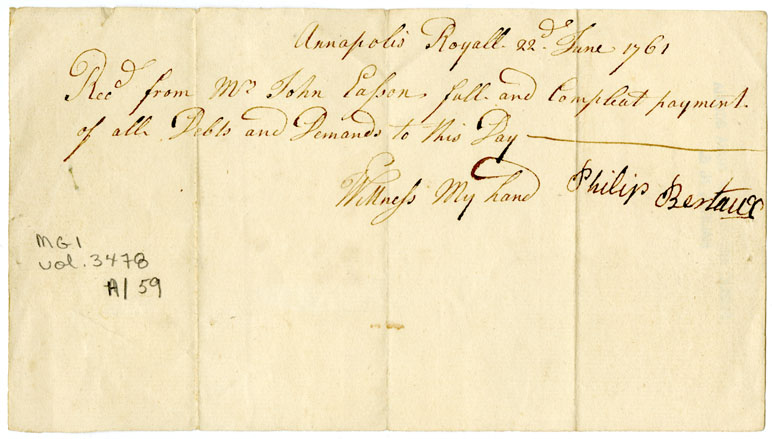 Annapolis Royall 22d. June 1761
Recd from Mr John Easson full and Compleat payment
of all Debts and Demands to this Day
Wittness My hand Philip Bertaux
MG1
vol. 3478
A/59